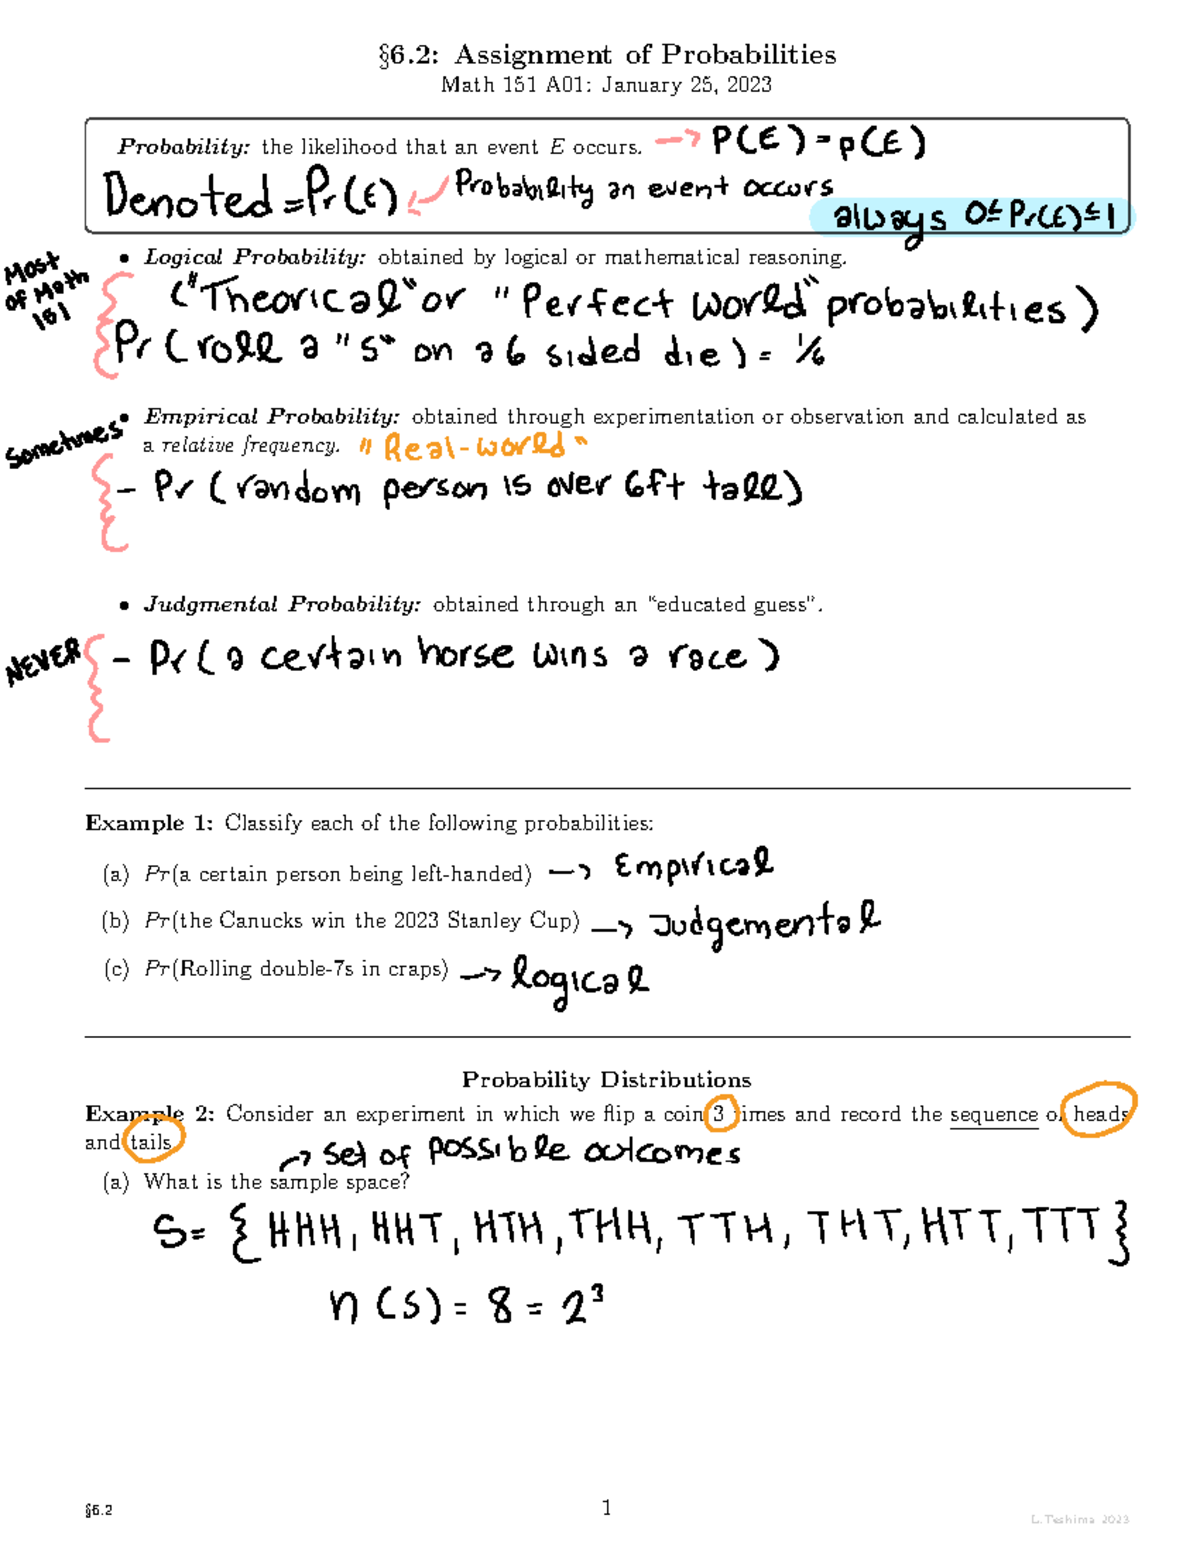 §6.2: Assignment of Probabilities
Math 151 A01: January 25, 2023
Probability: the likelihood that an event E occurs. → P(E) = p(E)
Denoted = Pr(E) ← Probability an event occurs
always 0 ≤ Pr(E) ≤ 1
Most of Math 151
• Logical Probability: obtained by logical or mathematical reasoning.
("Theorical" or "Perfect world" probabilities)
Pr (roll a "5" on a 6 sided die) = 1/6
Sometimes
• Empirical Probability: obtained through experimentation or observation and calculated as
a relative frequency. "Real-world"
- Pr (random person is over 6ft tall)
• Judgmental Probability: obtained through an "educated guess".
NEVER
- Pr (a certain horse wins a race)
Example 1: Classify each of the following probabilities:
(a) Pr(a certain person being left-handed) → Empirical
(b) Pr(the Canucks win the 2023 Stanley Cup) → Judgemental
(c) Pr(Rolling double-7s in craps) → logical
Probability Distributions
Example 2: Consider an experiment in which we flip a coin 3 times and record the sequence of heads
and tails
→ set of possible outcomes
(a) What is the sample space?
S = { HHH, HHT, HTH, THH, TTH, THT, HTT, TTT }
n (S) = 8 = 2³
§6.2
1
L.Teshima 2023